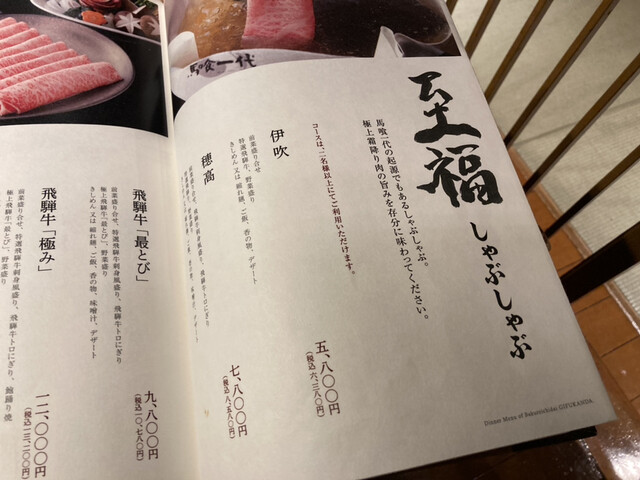 至福
しゃぶしゃぶ
馬喰一代の起源でもあるしゃぶしゃぶ。
極上霜降り肉の旨みを存分に味わってください。
コースは、二名様以上にてご利用いただけます。
伊吹
前菜盛り合せ
特選飛騨牛、野菜盛り
きしめん 又は 細れ麺、ご飯、香の物、デザート
五、八〇〇円
(税込 六、三八〇円)
穂高
七、八〇〇円
(税込 八、五八〇円)
飛騨牛「最とび」
前菜盛り合せ、特選飛騨牛刺身風盛り、飛騨牛トロにぎり
極上飛騨牛「最とび」、野菜盛り
きしめん 又は 細れ麺、ご飯、香の物、味噌汁、デザート
九、八〇〇円
(税込 一〇、七八〇円)
飛騨牛「極み」
一二、〇〇〇円
(税込 一三、二〇〇円)
馬喰一代
Dinner Menu of Bakuroichidai GIFUKANDA